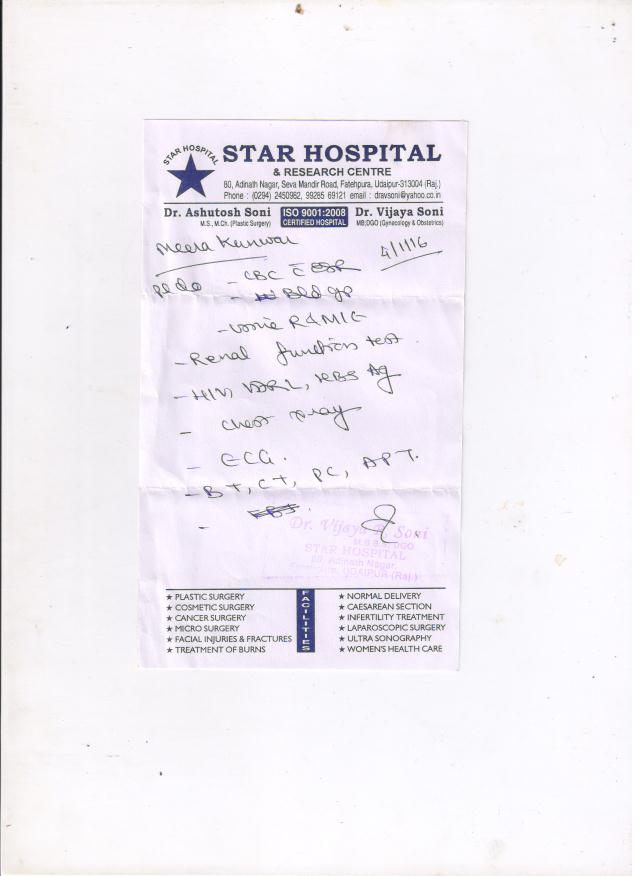 STAR HOSPITAL
STAR HOSPITAL
& RESEARCH CENTRE
60, Adinath Nagar, Seva Mandir Road, Fatehpura, Udaipur-313004 (Raj.)
Phone : (0294) 2450982, 99285 69121 email : dravsoni@yahoo.co.in
Dr. Ashutosh Soni ISO 9001:2008 Dr. Vijaya Soni
M.S., M.Ch. (Plastic Surgery) CERTIFIED HOSPITAL MB;DGO (Gynecology & Obstetrics)
Meera Kunwar
4/1/16
Pl do - CBC C ESR
- Bld gp
- Urine R & MIC
- Renal function test
- HIV, VDRL, HBS Ag
- Chest xray
- ECG.
- BT, CT, PC, APT.
-
Dr. Vijaya Soni
DGO
STAR HOSPITAL
60, Adinath Nagar,
UDAIPUR (Raj.)
★ PLASTIC SURGERY
★ COSMETIC SURGERY
★ CANCER SURGERY
★ MICRO SURGERY
★ FACIAL INJURIES & FRACTURES
★ TREATMENT OF BURNS
FACILITIES
★ NORMAL DELIVERY
★ CAESAREAN SECTION
★ INFERTILITY TREATMENT
★ LAPAROSCOPIC SURGERY
★ ULTRA SONOGRAPHY
★ WOMEN'S HEALTH CARE